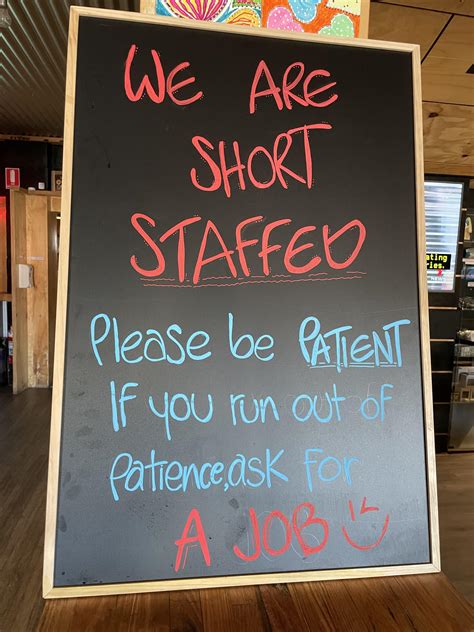 WE ARE
SHORT
STAFFED
Please be PATIENT
If you run out of
patience,ask for
A JOB